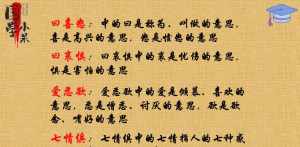 曰喜怒：中的曰是称为、叫做的意思，
喜是高兴的意思，怒是愤怒的意思
曰哀惧：曰哀惧中的哀是忧伤的意思，
惧是害怕的意思
爱恶欲：爱恶欲中的爱是倾慕、喜欢的
意思，恶是憎恶、讨厌的意思，欲是欲
念、嗜好的意思
七情俱：七情俱中的七情指人的七种感